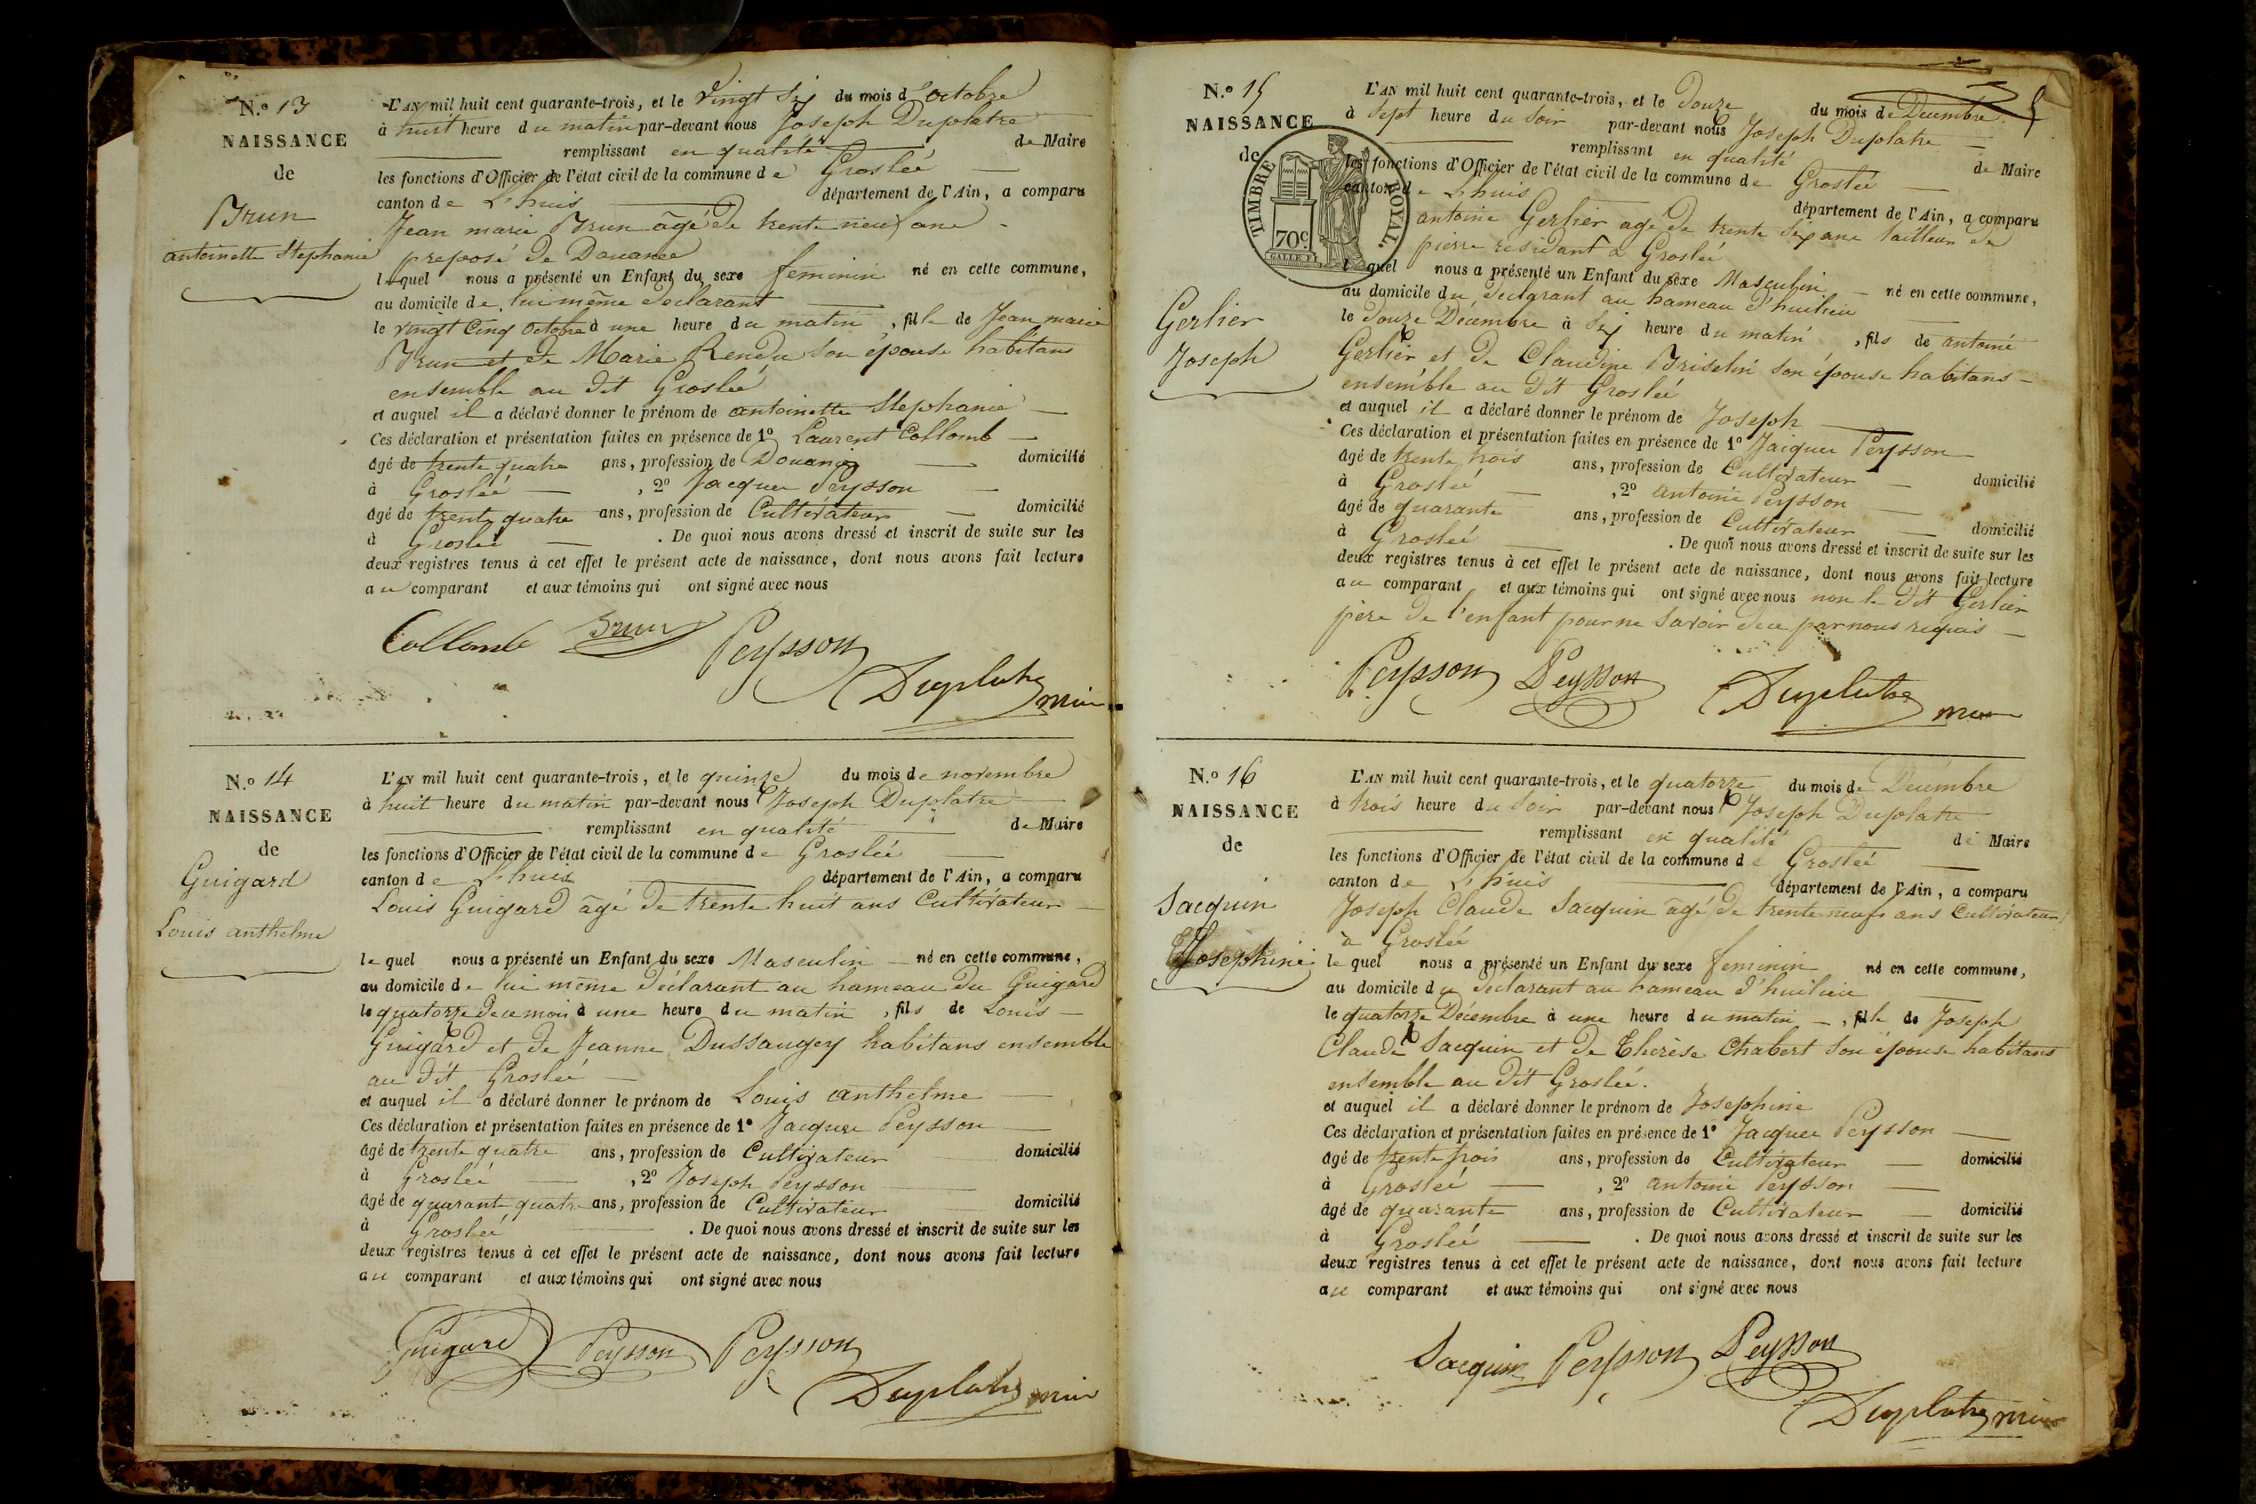 N.o 13
NAISSANCE
de
Brun
antoinette Stephanie
L'AN mil huit cent quarante-trois, et le vingt Six du mois d'octobre
à huit heure du matin par-devant nous Joseph Duplatre
remplissant en qualité de Maire
les fonctions d'Officier de l'état civil de la commune de Groslée
canton de L'huis département de l'Ain, a comparu
Jean marie Brun âgé de trente neuf ans
preposé de Douanes
lequel nous a présenté un Enfant du sexe feminin né en cette commune,
au domicile de lui même déclarant
le vingt Cinq Octobre à une heure du matin, fille de Jean marie
Brun et de Marie Rendu Son épouse habitans
ensemble au dit Groslée
et auquel il a déclaré donner le prénom de antoinette Stephanie
Ces déclaration et présentation faites en présence de 1º Laurent Collomb
âgé de trente quatre ans, profession de Douanier domicilié
à Groslée, 2º Jacques Peysson
âgé de trente quatre ans, profession de Cultivateur domicilié
à Groslée. De quoi nous avons dressé et inscrit de suite sur les
deux registres tenus à cet effet le présent acte de naissance, dont nous avons fait lecture
au comparant et aux témoins qui ont signé avec nous
Collomb Brun Peysson
Duplatre
N.o 14
NAISSANCE
de
Guigard
Louis anthelme
L'AN mil huit cent quarante-trois, et le quinze du mois de novembre
à huit heure du matin par-devant nous Joseph Duplatre
remplissant en qualité de Maire
les fonctions d'Officier de l'état civil de la commune de Groslée
canton de L'huis département de l'Ain, a comparu
Louis Guigard âgé de trente huit ans Cultivateur
lequel nous a présenté un Enfant du sexe Masculin né en cette commune,
au domicile de lui même déclarant au hameau du Guigard
le quatorze de ce mois à une heure du matin, fils de Louis
Guigard et de Jeanne Dussaugey habitans ensemble
au dit Groslée
et auquel il a déclaré donner le prénom de Louis anthelme
Ces déclaration et présentation faites en présence de 1º Jacques Peysson
âgé de trente quatre ans, profession de Cultivateur domicilié
à Groslée, 2º Joseph Peysson
âgé de quarante quatre ans, profession de Cultivateur domicilié
à Groslée. De quoi nous avons dressé et inscrit de suite sur les
deux registres tenus à cet effet le présent acte de naissance, dont nous avons fait lecture
au comparant et aux témoins qui ont signé avec nous
Guigard Peysson Peysson
Duplatre
N.o 15
NAISSANCE
de
TIMBRE ROYAL.
70c
Gerlier
Joseph
5
L'AN mil huit cent quarante-trois, et le Douze du mois de Décembre
à Sept heure du Soir par-devant nous Joseph Duplatre
remplissant en qualité de Maire
les fonctions d'Officier de l'état civil de la commune de Groslée
canton de L'huis département de l'Ain, a comparu
antoine Gerlier agé de trente Six ans tailleur de
pierre residant à Groslée
lequel nous a présenté un Enfant du sexe Masculin né en cette commune,
au domicile du déclarant au hameau d'huilieu
le douze Décembre à Six heure du matin, fils de antoine
Gerlier et de Claudine Briselin son épouse habitans
ensemble au dit Groslée
et auquel il a déclaré donner le prénom de Joseph
Ces déclaration et présentation faites en présence de 1º Jacques Peysson
âgé de trente trois ans, profession de Cultivateur domicilié
à Groslée, 2º antoine Peysson
âgé de quarante ans, profession de Cultivateur domicilié
à Groslée. De quoi nous avons dressé et inscrit de suite sur les
deux registres tenus à cet effet le présent acte de naissance, dont nous avons fait lecture
au comparant et aux témoins qui ont signé avec nous non le dit Gerlier
père de l'enfant pour ne Savoir de ce par nous requis
Peysson Peysson Duplatre
N.o 16
NAISSANCE
de
Jacquin
Josephine
L'AN mil huit cent quarante-trois, et le quatorze du mois de Décembre
à trois heure du Soir par-devant nous Joseph Duplatre
remplissant en qualité de Maire
les fonctions d'Officier de l'état civil de la commune de Groslée
canton de L'huis département de l'Ain, a comparu
Joseph Claude Jacquin âgé de trente neuf ans Cultivateur
à Groslée
lequel nous a présenté un Enfant du sexe feminin né en cette commune,
au domicile du déclarant au hameau d'huilieu
le quatorze Décembre à une heure du matin, fille de Joseph
Claude Jacquin et de Therèse Chabert Son épouse habitans
ensemble au dit Groslée.
et auquel il a déclaré donner le prénom de Josephine
Ces déclaration et présentation faites en présence de 1º Jacques Peysson
âgé de trente trois ans, profession de Cultivateur domicilié
à Groslée, 2º antoine Peysson
âgé de quarante ans, profession de Cultivateur domicilié
à Groslée. De quoi nous avons dressé et inscrit de suite sur les
deux registres tenus à cet effet le présent acte de naissance, dont nous avons fait lecture
au comparant et aux témoins qui ont signé avec nous
Jacquin Peysson Peysson
Duplatre